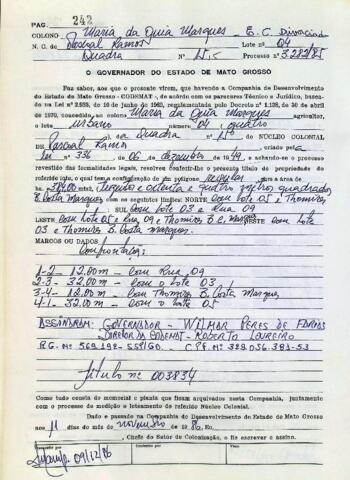 PAG. 242
COLONO Maria da Guia Marques - E. C. Divorciada
N. C. de Pascoal Ramos Lote nº 04
Quadra Nº 15 Processo nº 3.232/85
O GOVERNADOR DO ESTADO DE MATO GROSSO
Faz saber, aos que o presente virem, que havendo a Companhia de Desenvolvimento
do Estado de Mato Grosso - CODEMAT -, de acordo com os pareceres Técnico e Jurídico, basea-
da na Lei nº 2.083, de 10 de junho de 1963, regulamentada pelo Decreto nº 1.138, de 30 de abril
de 1970, concedido, ao colono Maria da Guia Marques agricultor,
o lote urbano número 04, quatro
da Quadra nº 15 do NÚCLEO COLONIAL
DE Pascoal Ramos criado pela
lei nº 336, de 06 de dezembro de 1949, e achando-se o processo
revestido das formalidades legais, resolveu conferir-lhe o presente título de propriedade do
referido lote, o qual tem a configuração de um polígono regular com a área de
384,00 mts2, Trezentos e oitenta e quatro metros quadrados
com os seguintes limites: NORTE com lote 05 e Thomires
B. Costa Marques SUL com lote 03 e Rua 09
LESTE com lote 05 e Rua 09 e Thomires B. C. Marques OESTE com lote
03 e Thomires B. Costa Marques.
MARCOS OU DADOS
Confrontações:
1-2 - 12.00m - com Rua 09
2-3 - 32.00m - com o lote 03
3-4 - 12.00m - com Thomires B. Costa Marques
4-1 - 32.00m - com o lote 05
ASSINARAM: GOVERNADOR - WILMAR PERES DE FARIAS
DIRETOR DA CODEMAT - ROBERTO LOUREIRO
R.G. Nº 569.198 - SSP/GO. - C.P.F. Nº
Título nº 003834
Como tudo consta do memorial e planta que ficam arquivados nesta Companhia, juntamente
com o processo de medição e loteamento do referido Núcleo Colonial.
Dado e passado na Companhia de Desenvolvimento do Estado de Mato Grosso
aos 11 dias do mês de novembro de 1986. Eu,
, Chefe do Setor de Colonização, o fiz escrever e assino.
09/12/86